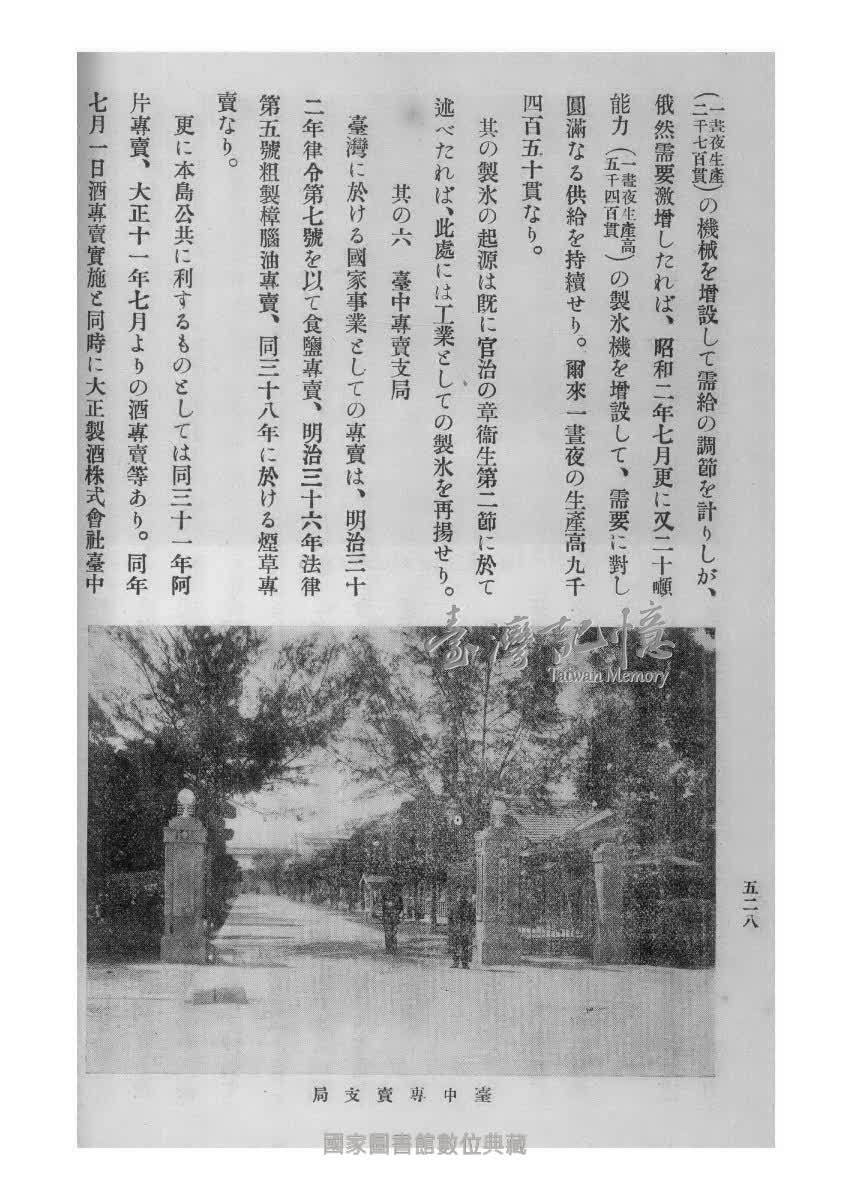 (一晝夜生產二千七百貫)の機械を增設して需給の調節を計りしが、
俄然需要激增したれば、昭和二年七月更に又二十噸
能力(一晝夜生產高五千四百貫)の製氷機を增設して、需要に對し
圓滿なる供給を持續せり。爾來一晝夜の生產高九千
四百五十貫なり。
其の製氷の起源は既に官治の章衞生第二節に於て
述べたれば、此處には工業としての製氷を再揚せり。
其の六 臺中專賣支局
臺灣に於ける國家事業としての專賣は、明治三十
二年律令第七號を以て食鹽專賣、明治三十六年法律
第五號粗製樟腦油專賣、同三十八年に於ける煙草專
賣なり。
更に本島公共に利するものとしては同三十一年阿
片專賣、大正十一年七月よりの酒專賣等あり。同年
七月一日酒專賣實施と同時に大正製酒株式會社臺中
臺灣記憶
Taiwan Memory
五二八
臺中專賣支局
國家圖書館數位典藏